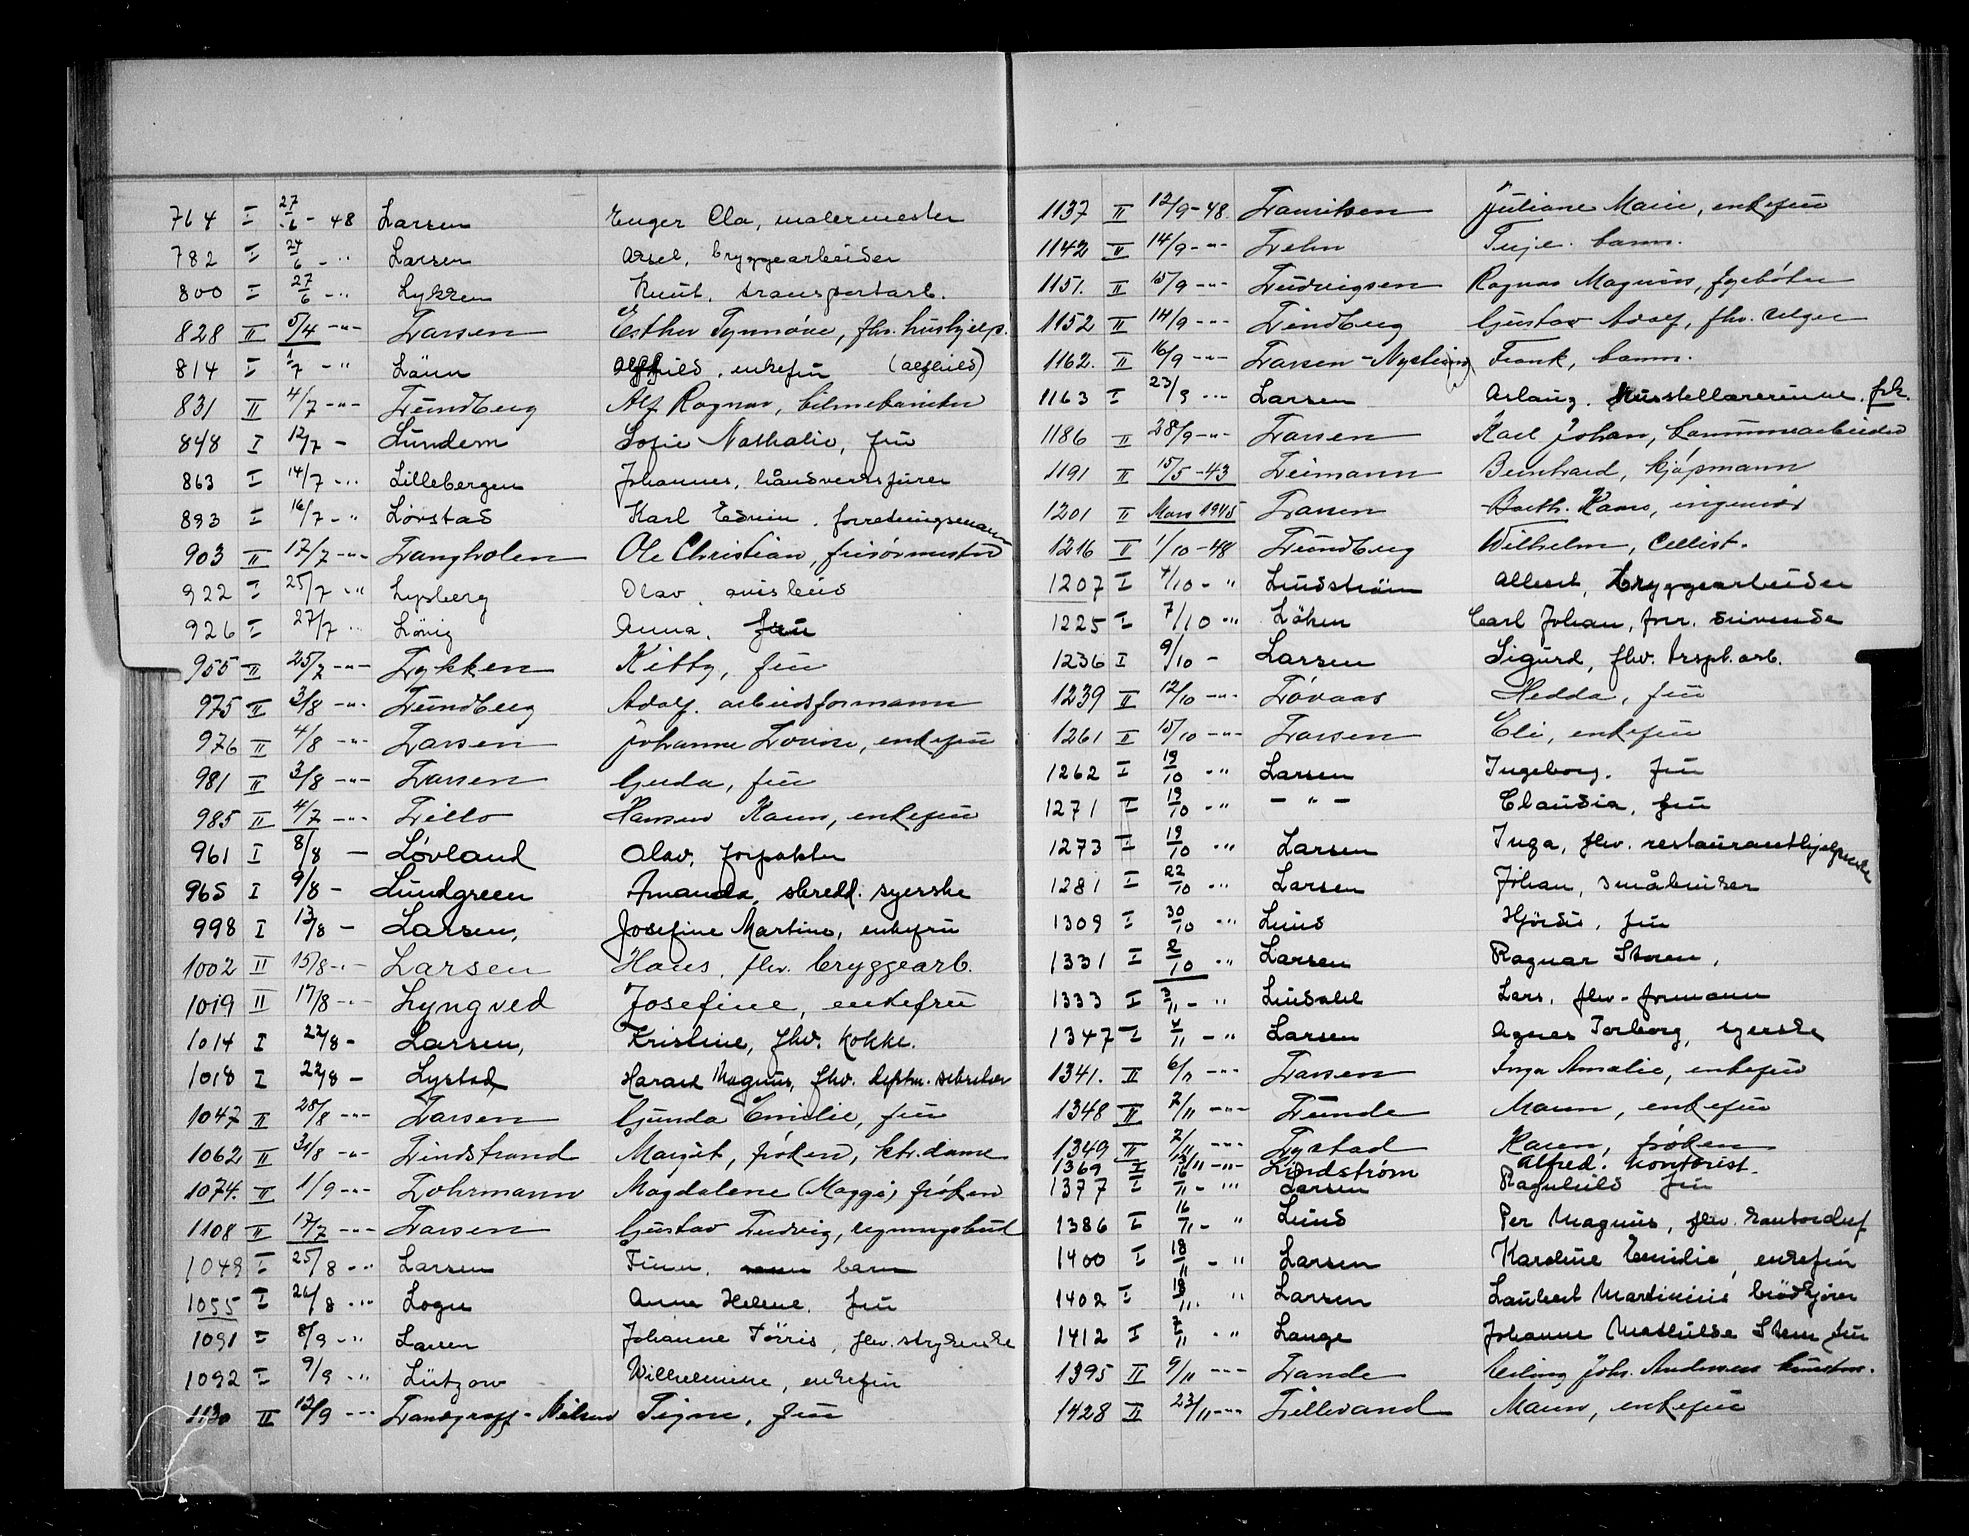 764 I 27/6 - 48 Larsen Enger Ola, malermester
782 I 24/6 - " Larsen Aksel, bryggearbeider
800 I 27/6 - " Lykken Knut, transportarb.
828 II 5/4 -"- Larsen Esther Synnöve, fhv. hushjelp.
814 I 1/7 - " enkefru (alfhild)
831 II 4/7 -"- Lundberg Alf Ragnar,
848 I 12/7 - Lundem Sofie Nathalie, fru
863 I 14/7 -" Lillebergen Johannes, håndverksfører
893 I 16/7 - " Lörstad Karl Edvin, forretningsmann
903 II 17/7 -"- Langholen Ole Christian, frisörmester
922 I 25/7 -" Lysberg Olav, avisbud
926 I 27/7 Lövig Anna, fru
955 II 25/7 -"- Lykken Kitty, fru
975 II 3/8 -"- Lundberg Adolf, arbeidsformann
976 II 4/8 -"- Larsen Johanne Lovise, enkefru
981 II 3/8 -"- Larsen Gerda, fru
985 II 4/7 -"- Lillo Hansen Karen, enkefru
961 I 8/8 - Lövland Olav, forpakter
965 I 9/8 - Lundgreen Amanda, skredd. syerske
998 I 13/8 - Larsen, Josefine Martine, enkefru
1002 II 15/8 -"- Larsen Hans, fhv. bryggearb.
1019 II 17/8 -"- Lyngved Josefine, enkefru
1014 I 22/8 - Larsen, Kristine, fhv. kokke.
1018 I 22/8 - Lystad Harald Magnus, fhv. sekretær
1047 II 28/8 -"- Larsen Gunda Emilie, fru
1062 II 31/8 -"- Lindstrand Margit, fröken, ktr.dame
1074. II 1/9 -"- Lohrmann Magdalene (Magga) fröken
1108 II 17/7 -"- Larsen Gustav Ludvig, regningsbud
1049 I 25/8 -" Larsen Finn, barn
1055 I 26/8 -" Logn Anna Helene, fru
1091 I 8/9 -" Larsen Johanne Törris, fhv. strykerske
1092 I 9/9 -" Lützow Wilhelmine, enkefru
1130 II 12/9 -"- Landgraff-Nilsen Signe, fru
1137 II 12/9-48. Lauritsen Juliane Marie, enkefru
1142 II 14/9 -"- Lehn Terje. barn.
1151. II 15/9 -"- Ludvigsen Ragnar Magnus, fyrböter
1152 II 14/9 -"- Lindberg Gustav Adolf, fhv. selger
1162. II 16/9 -"- Frank, barn.
1163 I 23/9 -" Larsen Aslaug. fr.
1186 II 28/9 -"- Larsen Karl Johan, kommunearbeider
1191 II 15/5 -43 Leimann Bernhard, kjöpmann
1201 II Mars 1945 Larsen Barth. Kaare, ingeniör
1216 II 1/10 -48 Lundberg Wilhelm, Cellist.
1207 I 4/10 - " Lindström Albert, bryggearbeider
1225 I 7/10 -" Löken Carl Johan, forr. drivende
1236 I 9/10 - Larsen Sigurd, fhv. trspt.arb.
1239 II 12/10 -"- Lövaas Hedda, fru
1261 II 15/10 -"- Larsen Eli, enkefru
1262 I 19/10 -" Larsen Ingeborg. fru
1271 I 19/10 -" - " - Claudia, fru
1273 I 19/10 -" Larsen Inga, fhv. restauranthjelperske
1281 I 22/10 -" Larsen Johan, småbruker
1309 I 30/10 -" Lund Hjördis, fru
1331 I 2/10 -" Larsen Ragnar Steen,
1333 I 3/11 - " Lindahl Lars, fhv. formann
1347 I 4/11 - " Larsen Agnes Torborg, syerske
1341. II 6/11 -"- Larsen Inga Amalie, enkefru
1348 II 7/11 -"- Lunde Maren, enkefru
1349 II 7/11 -"- Lystad Karen, fröken
1369 I 13/11 -"- Lindström Alfred. kontorist.
1377 I 16/11 - " Larsen Ragnhild fru
1386 I 16/11 - " Lund Per Magnus, fhv. kontorchef
1400 I 18/11 - " Larsen Karoline Emilie, enkefru
1402 I 18/11. " Larsen Laubert Martinius brödkjörer
1412 I 7/11 -" Lange Johanne Mathilde Steen fru
1395 II 9/11 -"- Lande Erling Johs. Andersen
1428 II 23/11 -"- Lillevand Maren, enkefru